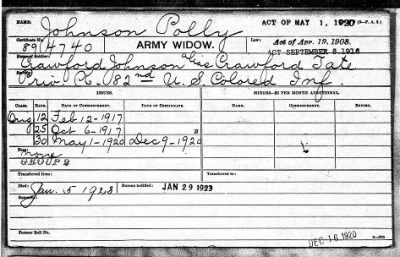 Johnson Polly
ACT OF MAY 1, 1920
Certificate No.
894740
ARMY WIDOW.
Act of Apr. 19, 1908.
ACT SEPTEMBER 8, 1916
Crawford Johnson alias Crawford Tate
Priv Co. 82nd U.S Colored Inf
ISSUES.
MINORS—$2 PER MONTH ADDITIONAL.
Class.
Rate.
Date of Commencement.
Date of Certificate.
Commencing.
Orig 12 Feb 12-1917
25 Oct 6-1917
30 May 1-1920 Dec 9-1920
None
GROUP 2
Transferred from:
Transferred to:
Died: Jan. 5 1923
Bureau notified: JAN 29 1923
Remarks:
Former Roll No.
DEC 16 1920